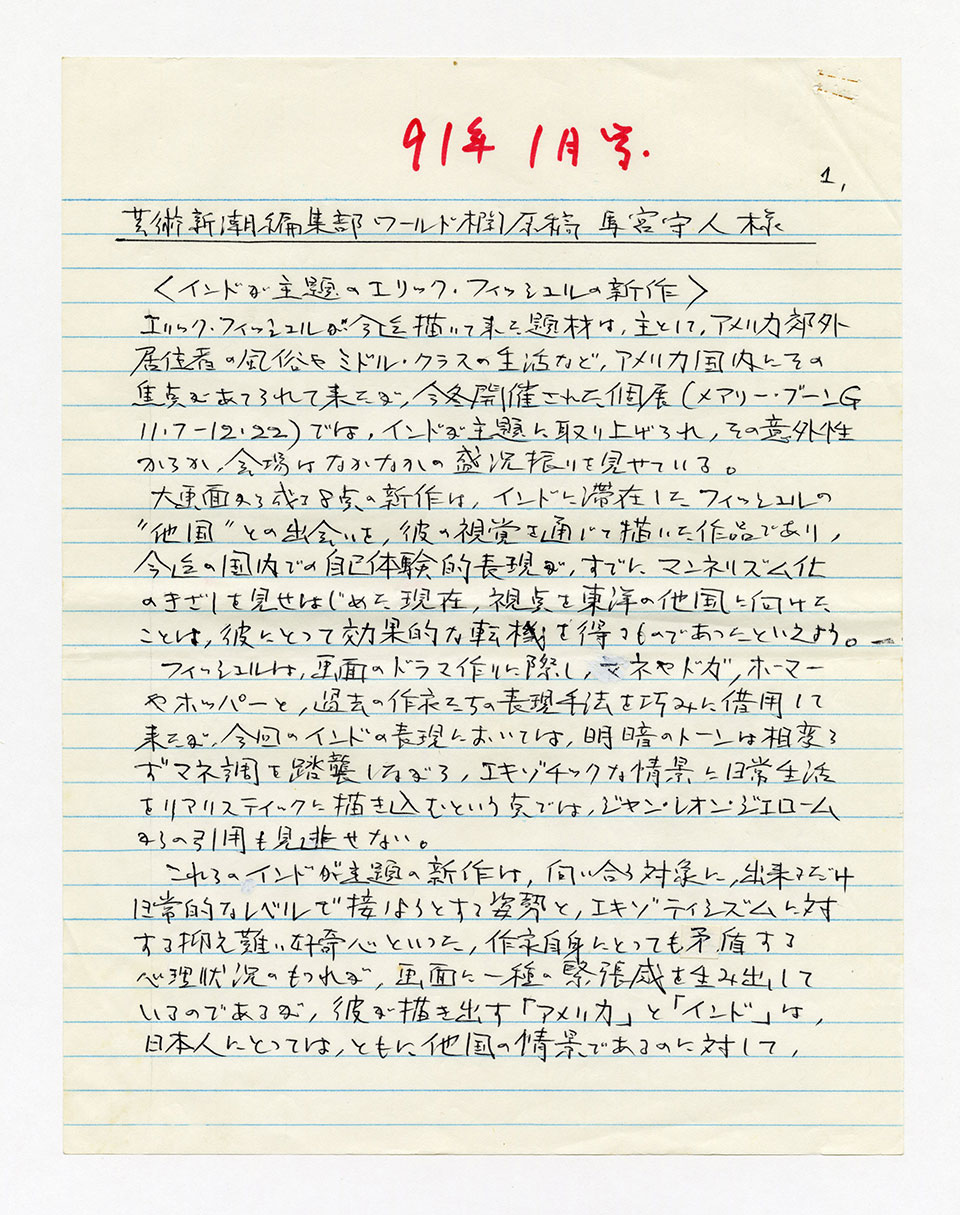 91年1月号.
1,
芸術新潮編集部ワールド欄原稿 馬宮守人様
〈インドが主題のエリック・フィッシュルの新作〉
エリック・フィッシュルが今迄描いて来た題材は,主として,アメリカ郊外
居住者の風俗やミドル・クラスの生活など,アメリカ国内にその
焦点があてられて来たが,今冬開催された個展(メアリー・ブーンG
11.7-12.22)では,インドが主題に取り上げられ,その意外性
からか,会場はなかなかの盛況振りを見せている。
大画面から成る8点の新作は,インドに滞在したフィッシュルの
"他国"との出会いを,彼の視覚を通じて描いた作品であり,
今迄の国内での自己体験的表現が,すでにマンネリズム化
のきざしを見せはじめた現在,視点を東洋の他国に向けた
ことは,彼にとって効果的な転機を得るものであったといえよう。
フィッシュルは,画面のドラマ作りに際し,マネやドガ,ホーマー
やホッパーと,過去の作家たちの表現手法を巧みに借用して
来たが,今回のインドの表現においては,明暗のトーンは相変ら
ずマネ調を踏襲しながら,エキゾチックな情景に日常生活
をリアリスティックに描き込むという点では,ジャン・レオン・ジェローム
からの引用も見逃せない。
これらのインドが主題の新作は,向い合う対象に,出来るだけ
日常的なレベルで接しようとする姿勢と,エキゾティシズムに対
する抑え難い好奇心といった,作家自身にとっても矛盾する
心理状況のもつれが,画面に一種の緊張感を生み出して
いるのであるが,彼が描き出す「アメリカ」と「インド」は,
日本人にとっては,ともに他国の情景であるのに対して,